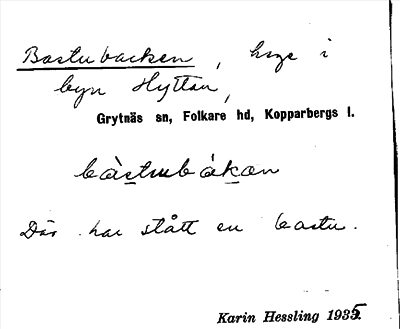 Bastubacken, hage i
byn Hyttan,
Grytnäs sn, Folkare hd, Kopparbergs l.
bàstubákan
Där har stått en bastu.
Karin Hessling 1935